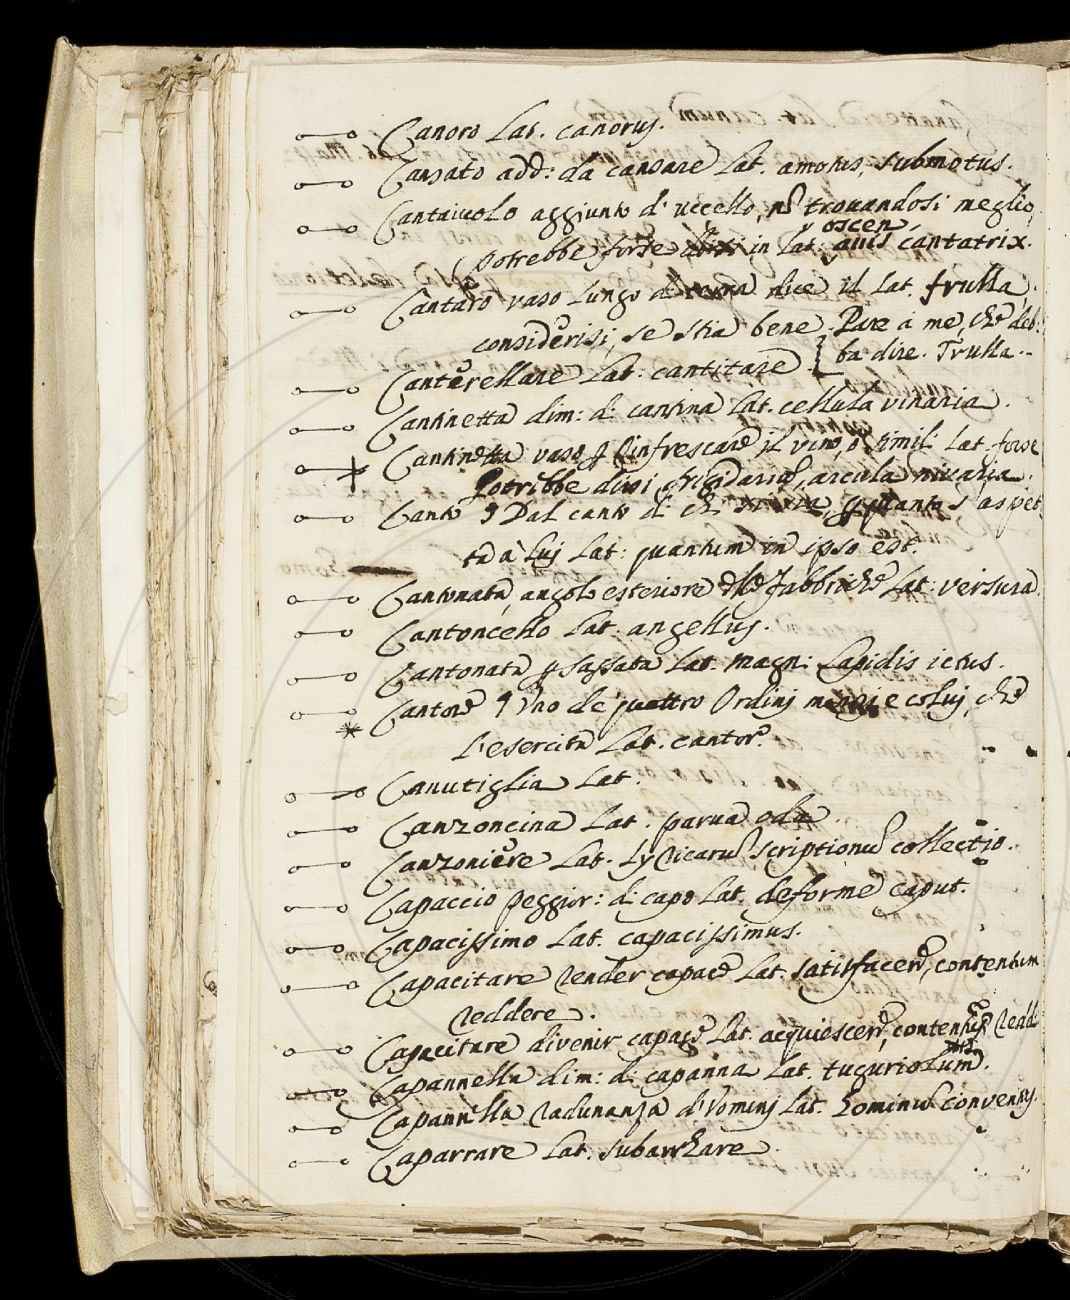 Canoro Lat. canorus.
Cansato add: da cansare Lat. amotus, submotus.
Cantaiuolo aggiunto d'uccello, nō trouandosi meglio
potrebbe forse in Lat. oscen, auis cantatrix.
Cantaro vaso lungo dice il Lat. frulla,
considerisi, se stia bene. Pare à me, che deb:
ba dire. Trulla.
Canterellare Lat: cantitare
Cantinetta dim: di cantina Lat. cellula vinaria.
Cantinetta vaso p rinfrescare il vino, o simil: Lat. forse
Potrebbe dirsi frigidariū, arcula niuaria.
Canto § Dal canto di che, p quanto s'aspet:
ta à luj Lat: quantum in ipso est.
Cantonata, angolo esteriore delle fabbriche Lat: versura.
Cantoncello Lat. angellus.
Cantonata p sassata Lat. magni Lapidis ictus.
Cantore § Vno de quattro Ordinj e coluj, che
l'esercita Lat. cantor.
Canutiglia Lat.
Canzoncina Lat. parua oda.
Canzoniere Lat. Lyricarū scriptionū collectio.
Capaccio peggior: di capo Lat. deforme caput.
Capacissimo Lat. capacissimus.
Capacitare render capace Lat. satisfacere, contentum
reddere.
Capacitare divenir capace Lat. acquiescere, reddi
Capannella dim: di capanna Lat. tuguriolum.
Capannella radunanza d'Vominj Lat. hominū conventus.
Caparrare Lat. subarrhare.